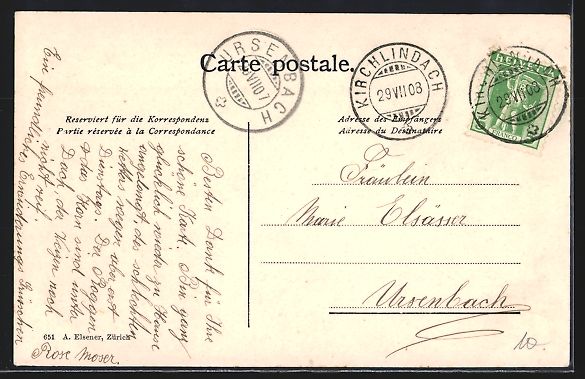 Carte postale.
URSENBACH
KIRCHLINDACH
29 VII 08
KIRCHLINDACH
29 VII 08
HELVETIA
FRANCO
Reserviert für die Korrespondenz
Partie réservée à la Correspondance
Adresse des Empfängers
Adresse du Destinataire
Besten Dank für Ihre
schöne Karte. Bin ganz
glücklich wieder zu Hause
angelangt, des schlechten
Wetters wegen aber erst
Dienstags. Der Roggen
& das Korn sind unter
Dach, der Weizen noch
nicht reif.
Ein freundliches
Rose Moser.
Fräulein
Marie Elsässer
Ursenbach
651 A. Elsener, Zürich
10.